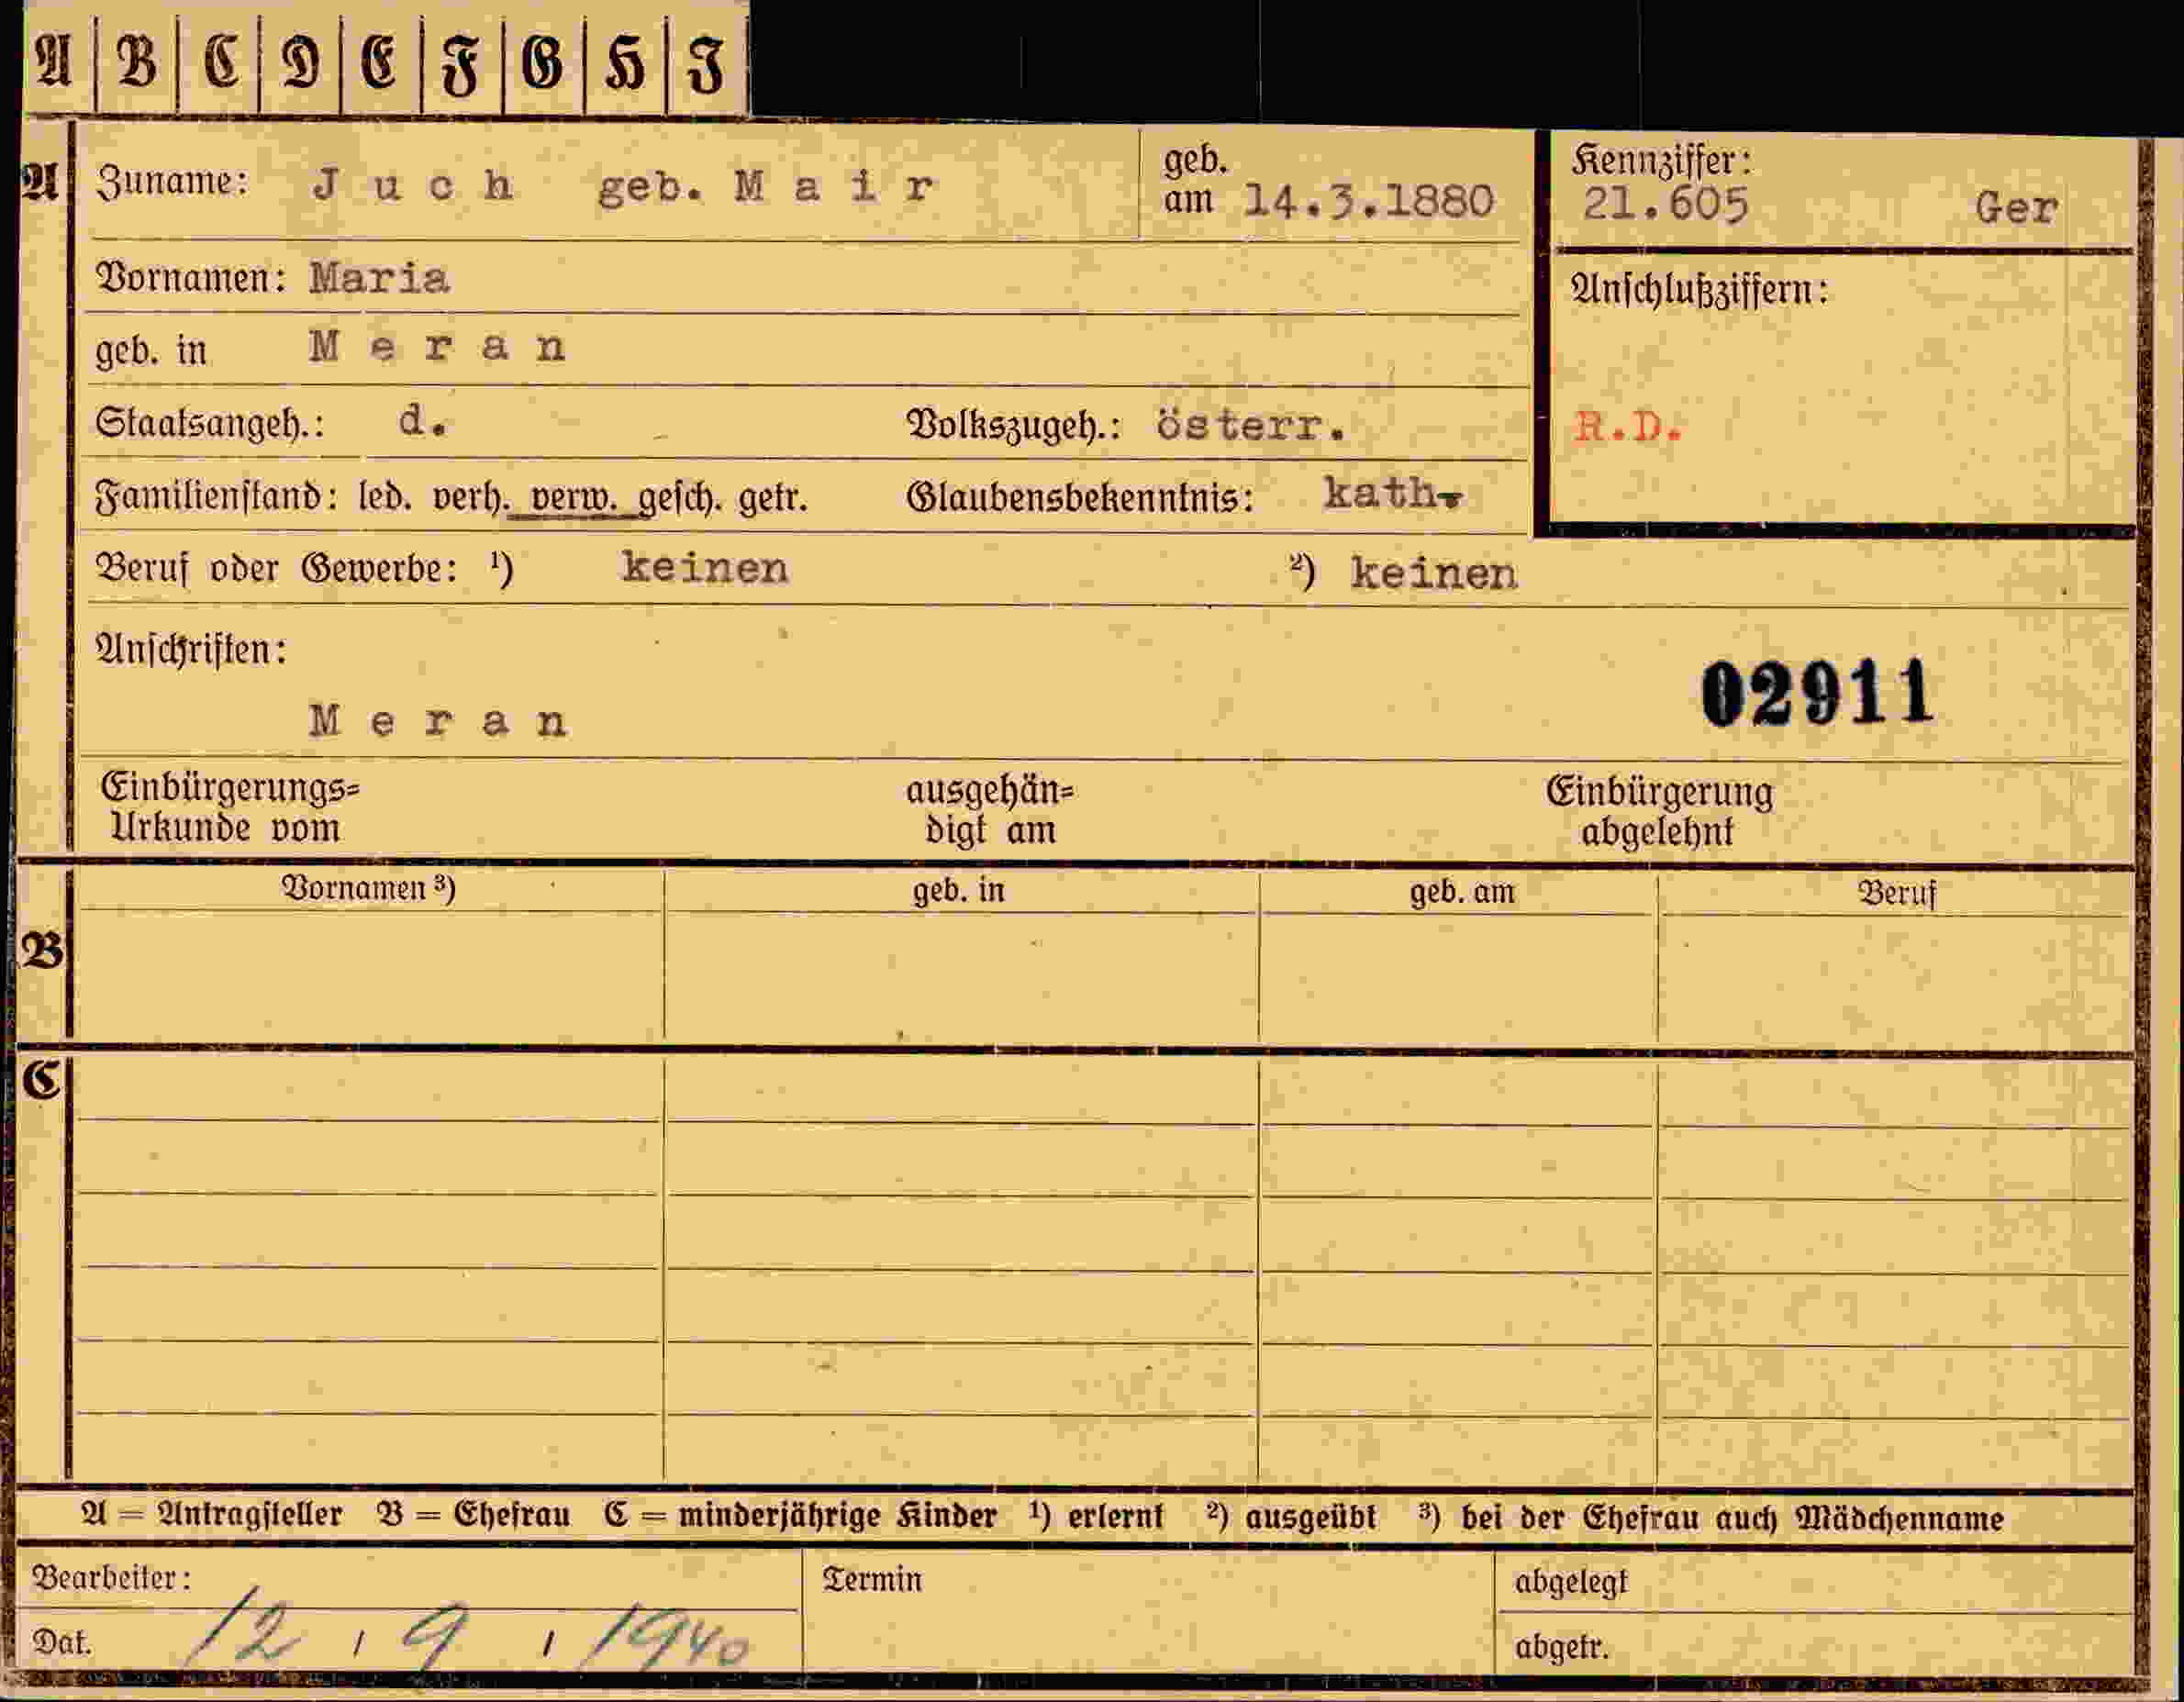 A B C D E F G H J
A Zuname: Juch geb. Mair geb. am 14.3.1880 Kennziffer: 21.605 Ger
Vornamen: Maria Anschlußziffern:
geb. in Meran
Staatsangeh.: d. Volkszugeh.: österr. R.D.
Familienstand: led. verh. verw. gesch. getr. Glaubensbekenntnis: kath.
Beruf oder Gewerbe: ¹) keinen ²) keinen
Anschriften:
Meran 02911
Einbürgerungs= ausgehän= Einbürgerung
Urkunde vom digt am abgelehnt
Vornamen ³) geb. in geb. am Beruf
B
C
A = Antragsteller B = Ehefrau C = minderjährige Kinder ¹) erlernt ²) ausgeübt ³) bei der Ehefrau auch Mädchenname
Bearbeiter: Termin abgelegt
Dat. 12 / 9 / 1940 abgetr.